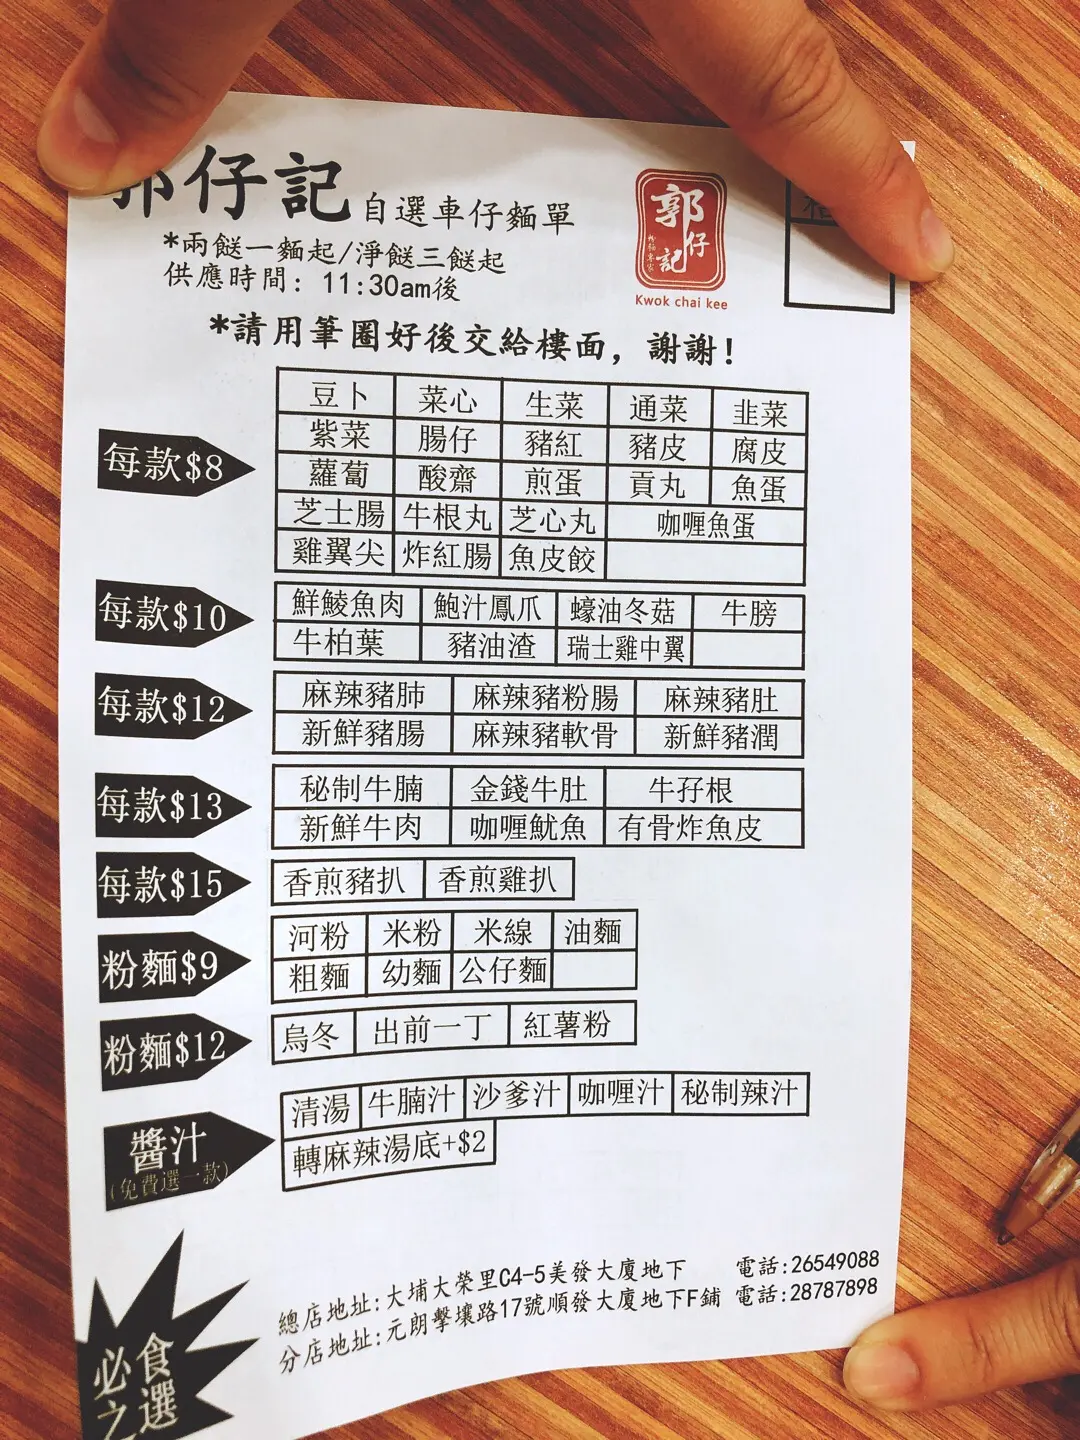 郭仔記 自選車仔麵單
*兩餸一麵起/淨餸三餸起
供應時間: 11:30am後
郭仔記
粉麵專家
Kwok chai kee
*請用筆圈好後交給樓面，謝謝!
每款$8
豆卜 菜心 生菜 通菜 韭菜
紫菜 腸仔 豬紅 豬皮 腐皮
蘿蔔 酸齋 煎蛋 貢丸 魚蛋
芝士腸 牛根丸 芝心丸 咖喱魚蛋
雞翼尖 炸紅腸 魚皮餃
每款$10
鮮鯪魚肉 鮑汁鳳爪 蠔油冬菇 牛膀
牛柏葉 豬油渣 瑞士雞中翼
每款$12
麻辣豬肺 麻辣豬粉腸 麻辣豬肚
新鮮豬腸 麻辣豬軟骨 新鮮豬潤
每款$13
秘制牛腩 金錢牛肚 牛孖根
新鮮牛肉 咖喱魷魚 有骨炸魚皮
每款$15
香煎豬扒 香煎雞扒
粉麵$9
河粉 米粉 米線 油麵
粗麵 幼麵 公仔麵
粉麵$12
烏冬 出前一丁 紅薯粉
醬汁
(免費選一款)
清湯 牛腩汁 沙爹汁 咖喱汁 秘制辣汁
轉麻辣湯底+$2
必食
之選
總店地址:大埔大榮里C4-5美發大廈地下 電話:26549088
分店地址:元朗擊壤路17號順發大廈地下F鋪 電話:28787898